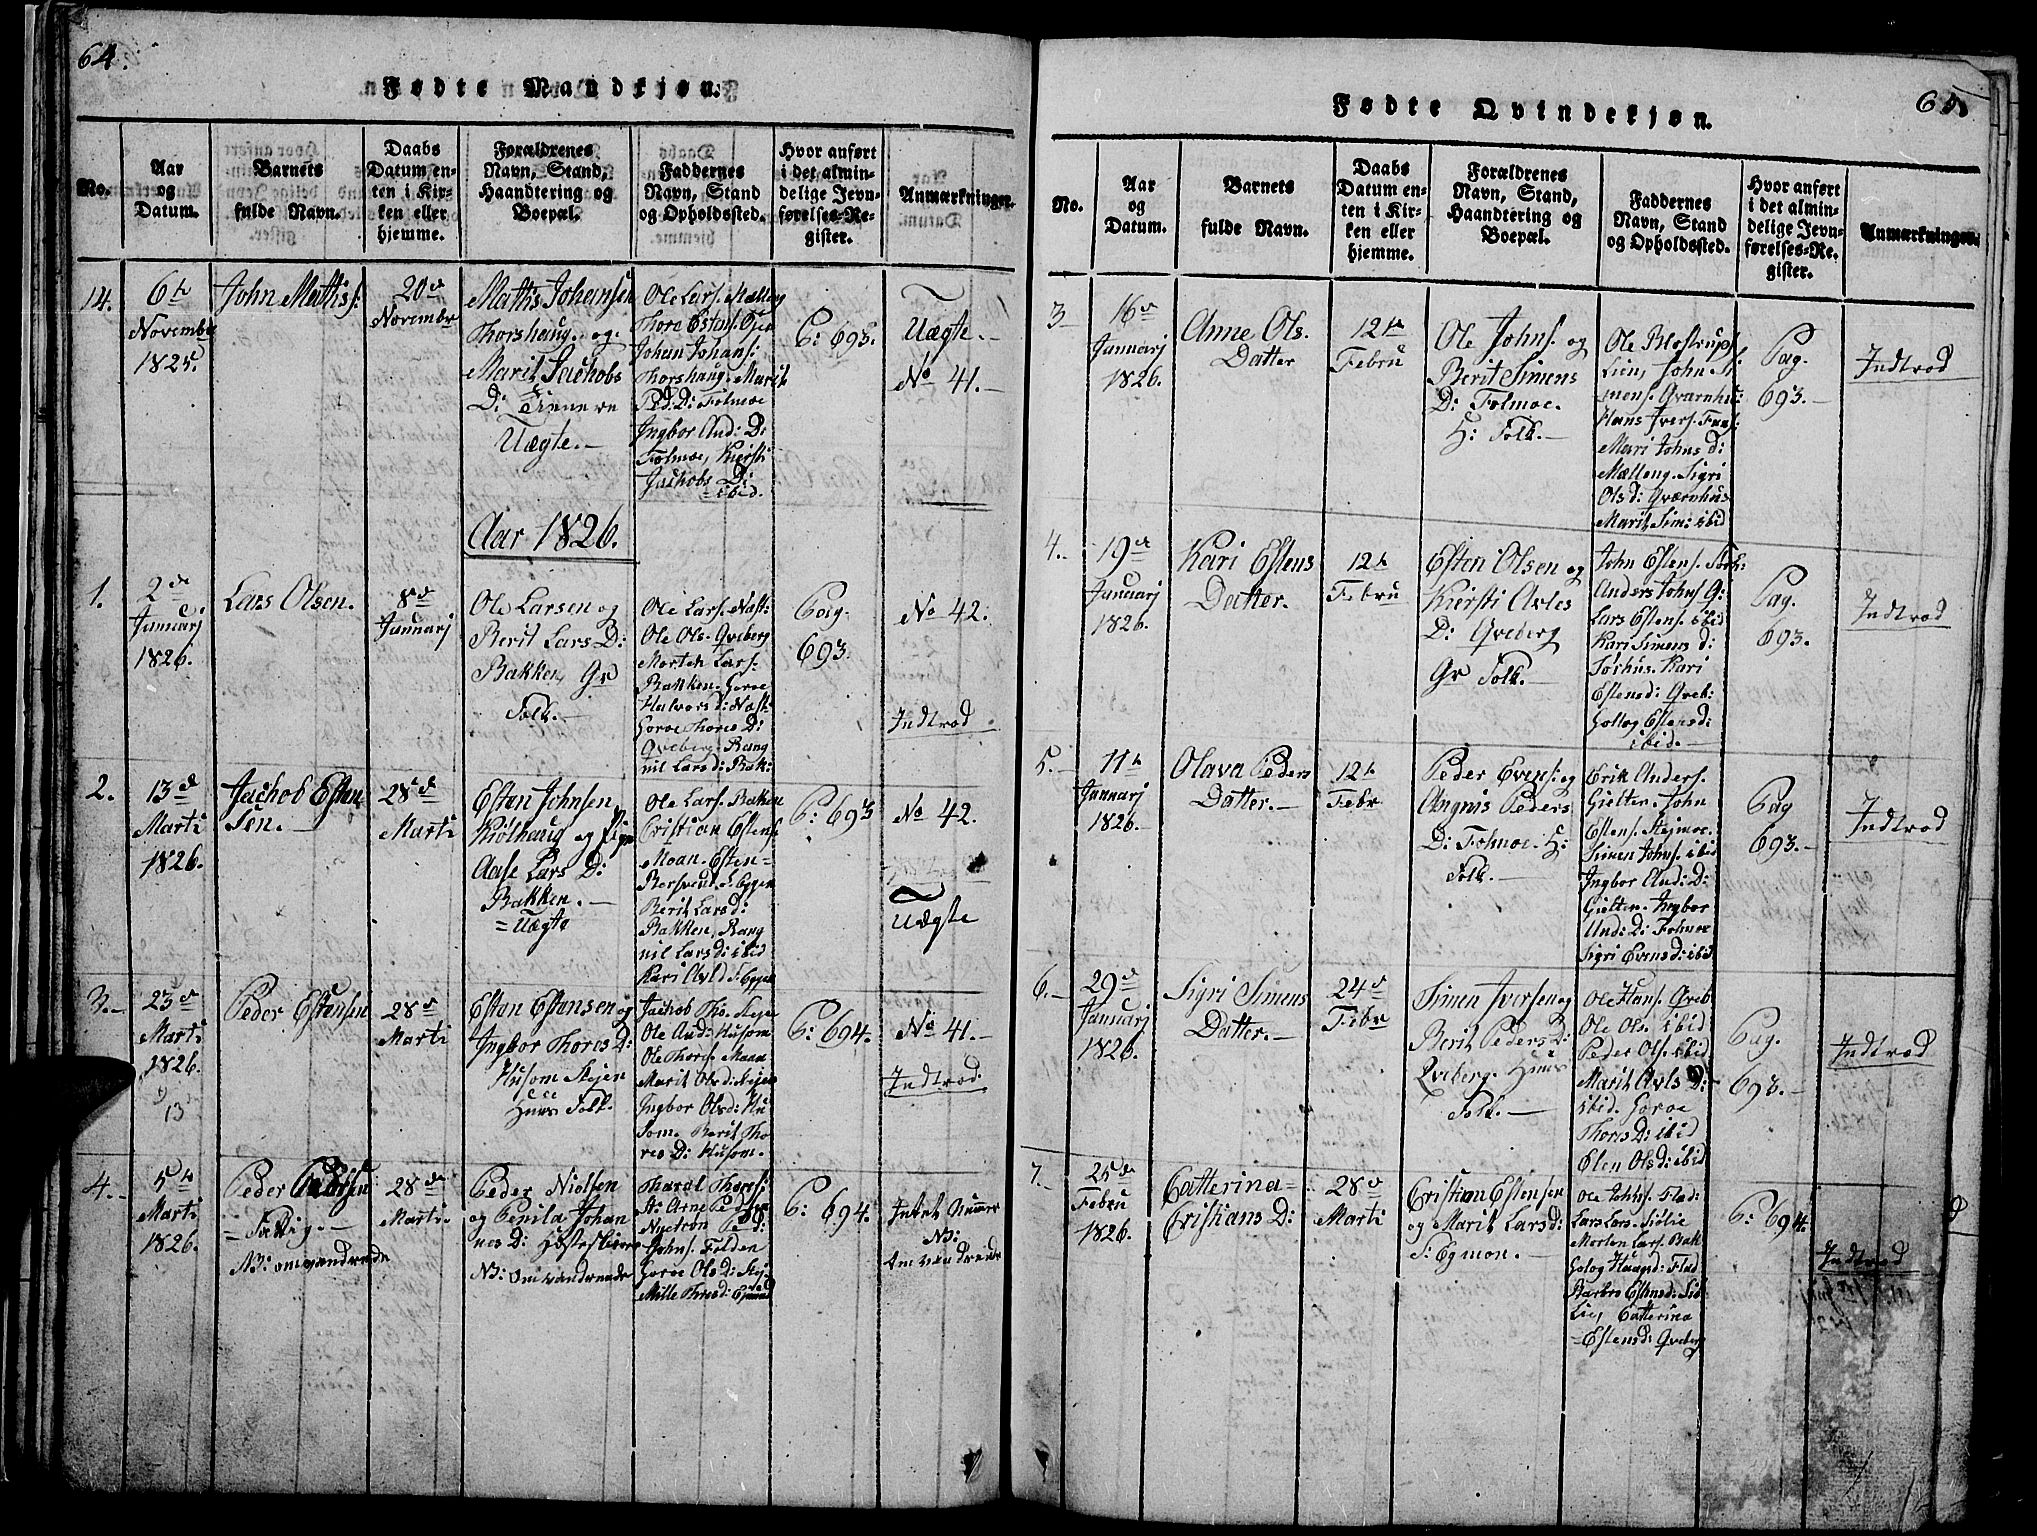 64.
Fødte Mandkjøn.
No.
Aar
og
Datum.
Barnets
fulde Navn.
Daabs
Datum en-
ten i Kir-
ken eller
hjemme.
Forældrenes
Navn, Stand,
Haandtering og
Boepæl.
Faddernes
Navn, Stand
og Opholdssted.
Hvor anført
i det almin-
delige Jevn-
førelses-Re-
gister.
Anmærkninger.
14.
6te
November
1825.
John Mathis:
20de
November
Mathis Johansen
Thorshaug og
Marit Jachobs
D:
Uægte.
Ole Lars. Mælleng
Thore Estens.
Johan Johans:
Thorshaug. Marit
Ped: D: Folmoe
Ingbor And: D:
Folmoe, Kiersti
Jachobs D:
ibid.
P: 693.
Uægte.
No 41.
Aar 1826.
1.
2de
Januarj
1826.
Lars Olsen.
8de
Januarj
Ole Larsen og
Berit Lars D:
Bakken, Gr
Folk.
Ole Lars. Næst:
Ole Ols. Qveberg
Morten Lars.
Bakken. Goroe
Halvors d: Næst:
Goroe Thores D:
Qveberg. Rang
nil Lars d: Bak:
Pag.
693.
No 42.
Indtrod
2.
13de
Marti
1826.
Jachob Esten
sen.
28de
Marti
Esten Johnsen
Kiølhaug og Pige
Aase Lars D:
Bakken.
= Uægte
Ole Lars. Bakken
Cristian Estens
Moan. Esten
Bersvends: Eggen
Berit Lars d:
Bakken, Rang
nil Lars d: ibid
Kari Avld: Eggen
P: 693
No 42.
Uægte
3.
23de
Marti
1826.
13
Peder Estensen
28de
Marti
Esten Estensen og
Ingbor Thores D:
Husom Stejen
Huus Folk.
Jachob Tho. Steje
Ole And: Husom
Ole Thores. Moan
Marit Ols d: Stejen
Ingbor Ols d: Hu
som. Berit Tho
res D: Husom.
P: 694.
No 41.
Indtrod.
4.
5te
Marti
1826.
Peder Pedersen
= Fattig.
NB: omvandrende
28de
Marti.
Peder Nielsen
og Penila Johan
nes D:
NB: omvandrende
Tharal Thores:
St: Arne Peders
Nystrøn
Johns. Folden
Goroe Ols D: Stej
Mille Thres d:
P: 694.
Intet Nummer
NB:
Omvandrende
65.
Fødte Qvindekjøn.
No.
Aar
og
Datum.
Barnets
fulde Navn.
Daabs
Datum en-
ten i Kir-
ken eller
hjemme.
Forældrenes
Navn, Stand,
Haandtering og
Boepæl.
Faddernes
Navn, Stand
og Opholdssted.
Hvor anført
i det almin-
delige Jevn-
førelses-Re-
gister.
Anmærkninger.
3
16de
Januarj
1826.
Anne Ols.
Datter
12te
Febru
Ole Johns. og
Berit Simens
D: Folmoe.
H: Folk.
Ole Blostrups:
Lien, John Si
mens. Qvernhu:
Hans Ivers.
Mari Johns d:
Mælleng. Sigri
Ols d: Qværnhus
Marit Sim: ibid
Pag.
693.
Indtrod
4.
19de
Januarj
1826.
Kari Estens
Datter.
12te
Febru
Esten Olsen og
Kiersti Avles
D: Qveberg
Gr Folk.
John Estens.
Anders Johns Q:
Lars Estens. ibid
Kari Simens d:
Kari
Estens d: Qveb:
Gollog Estens d:
ibid.
Pag.
693.
Indtrod
5.
11te
Januarj
1826.
Olava Peders
Datter.
12te
Febr
Peder Evens: og
Angnis Peders
D: Folmoe. H:
Folk.
Erik Anders.
Gielten. John
Estens. Stejmoe.
Simen Johns. ibid
Ingbor And: D:
Gielten. Ingbor
And: D: Folmoe
Sigri Evens d: ibid
Pag
693.
Indtrod
6.
29de
Januarj
1826.
Sigri Simens
Datter.
24de
Febr
Simen Iversen og
Berit Peders D:
Qveberg. Huus
Folk.
Ole Hans. Qveb.
Ole Ols. ibid
Peder Ols. ibid
Marit Avls D:
ibid. Goroe
Thores D: ibid
Elen Ols D: ibid
Pag.
693.
Indtrod
7.
25de
Febru
1826.
Catterina
Cristians D:
28de
Marti
Cristian Estensen
og Marit Lars d:
S: Egmon.
Ole Johns. Flad:
Lars Lars. Siølie
Morten Lars. Bak
Golog Haags d: Flad
Barbro Estens d: Siø
Lie, Catterina
Estens d: Qveberg
P: 694.
Indtrod